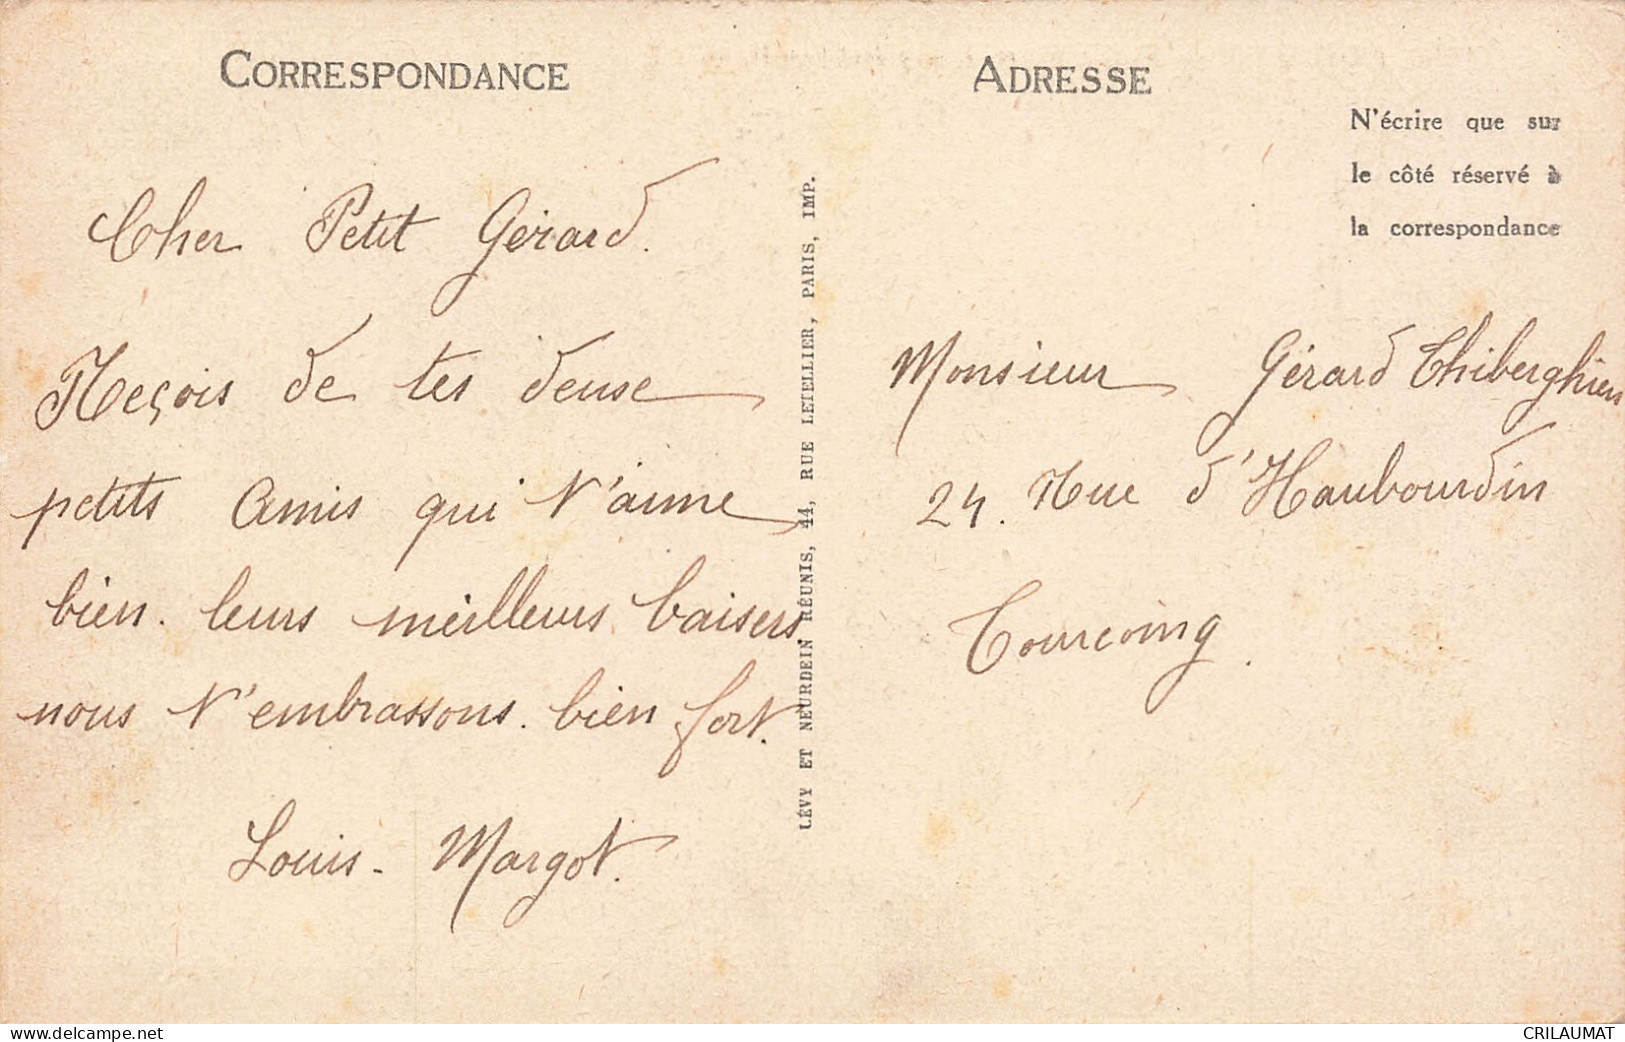 CORRESPONDANCE
Cher Petit Gérard.
Reçois de tes deuse
petits Amis qui t'aime
bien. leurs meilleurs baisers.
nous t'embrassons. bien fort.
Louis - Margot.
LÉVY ET NEURDEIN RÉUNIS, 44, RUE LETELLIER, PARIS, IMP.
ADRESSE
N'écrire que sur
le côté réservé à
la correspondance
Monsieur Gérard Thiberghien
24. Rue d'Haubourdin
Tourcoing.
delcampe.net
CRILAUMAT